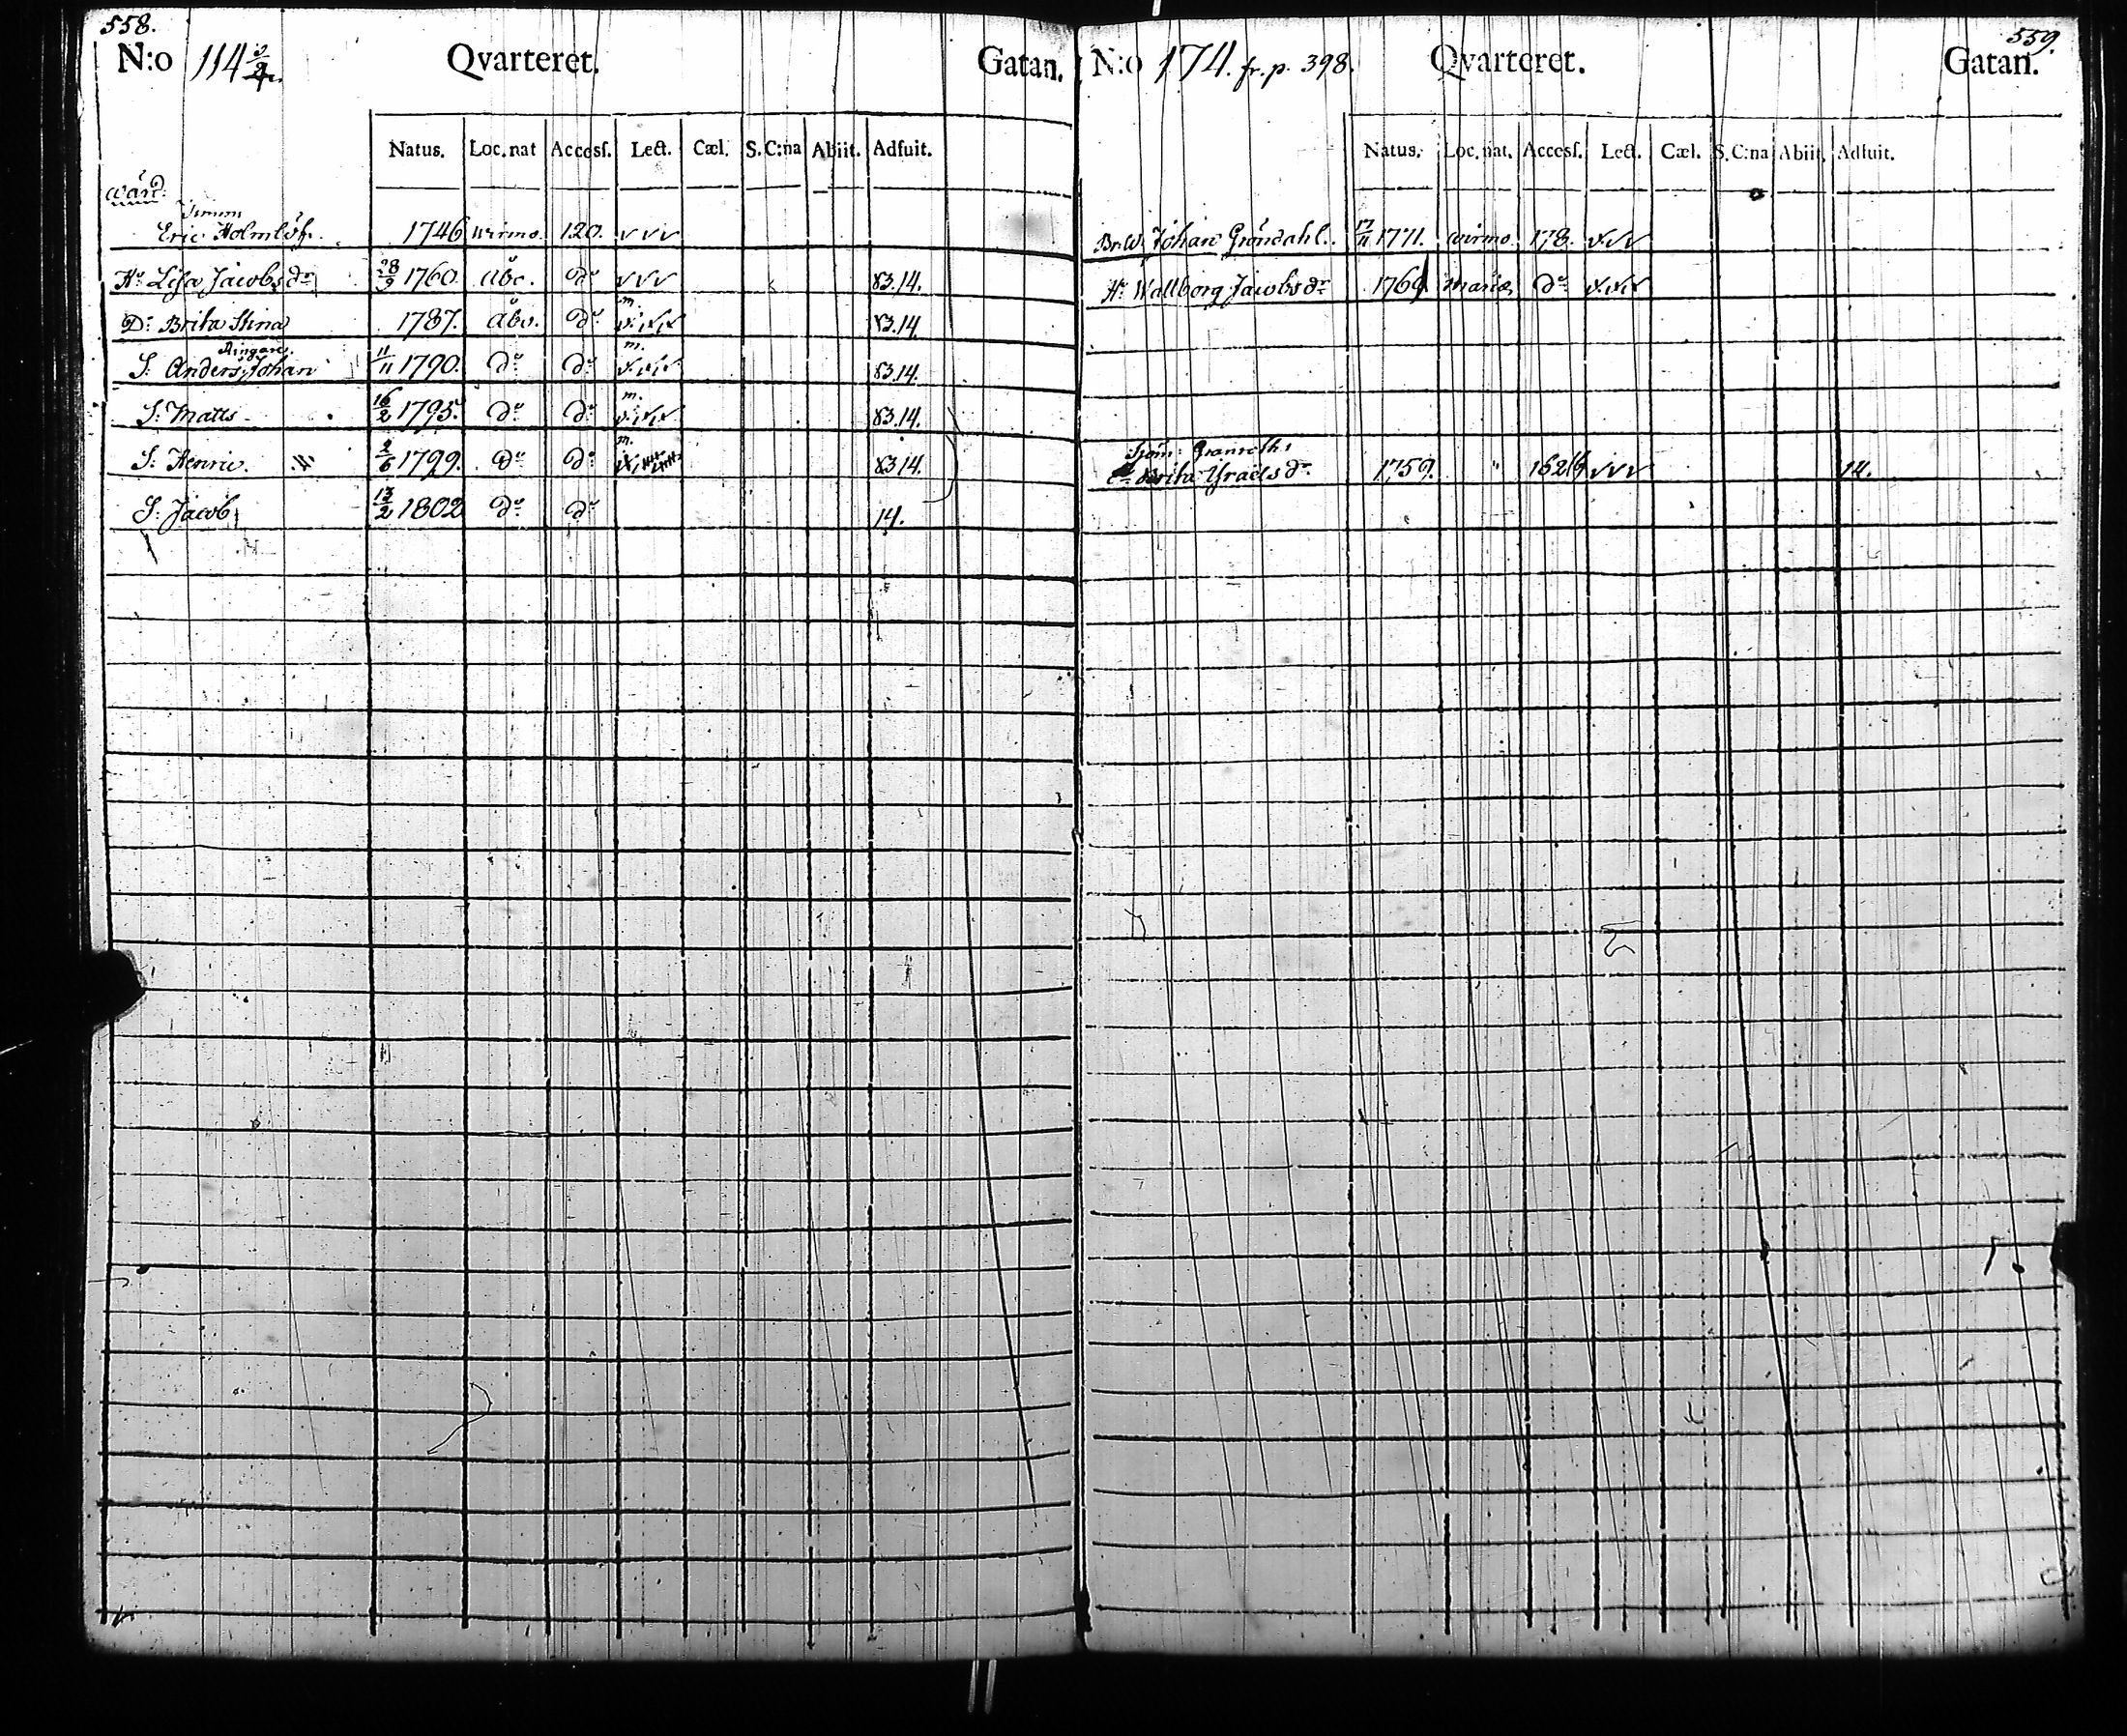 558.
N:o 114 3/4 Qvarteret. Gatan.
Natus. Loc.nat Accesſ. Lect. Cæl. S.C:na Abiit. Adfuit.
wärd:
Timm
Eric Holmlöf. 1746 wirmo. 120. v v v
Hu Lisa Jacobsdr 28/9 1760. åbo. do v v v 83.14.
Dr Brita Stina 1787. åbo. do m. v v v 83.14.
Ringare.
S: Anders Johan 11/11 1790. do do m. v v v 83.14.
S: Matts 16/2 1795. do do m. v v v 83.14.
S: Henric. 2/6 1799. do do m. 83.14.
S: Jacob 13/2 1802 do do 14.
559.
N:o 174. fr. p. 398. Qvarteret. Gatan.
Natus. Loc.nat. Accesſ. Lect. Cæl. S.C:na Abiit. Adfuit.
Br.W. Johan Gröndahl. 17/11 1771. wirmo. 178. v v v
Hu Wallborg Jacobsdr 1769 Mariæ do v v v
Sjöm: Granroths
Brita Ysraelsdr 1759. " 162 v v v 14.